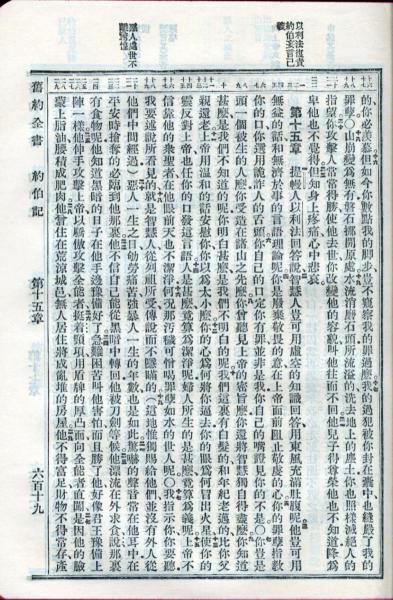 以利法復責
約伯妄言己
義
的你必羨慕但如今你數點我的脚步豈不窺察我的罪過麼我的過犯被你封在囊中也縫嚴了我的
罪孽○山崩變爲無有磐石挪開原處水流消磨石頭所流溢的洗去地上的塵土你也照樣滅絕人的
指望你攻擊人常常得勝使他去世你改變他的容貌叫他往而不回他兒子得尊榮他也不知道降爲
卑他也不覺得但知身上疼痛心中悲哀
第十五章 提幔人以利法回答說智慧人豈可用虛空的知識回答用東風充滿肚腹呢他豈可用
無益的話和無濟於事的言語理論呢你是廢棄敬畏的意在上帝面前阻止敬虔的心你的罪孽指教
你的口你選用詭詐人的舌頭你自己的口定你有罪並非是我你自己的嘴證見你的不是○你豈是
頭一個被生的人麼你受造在諸山之先麼你曾聽見上帝的密旨麼你還將智慧獨自得盡麼你知道
甚麼是我們不知道的呢你明白甚麼是我們不明白的呢我們這裏有白髮的和年紀老邁的比你父
親還老上帝用溫和的話安慰你你以爲太小麼你的心爲何將你逼去你的眼爲何冒出火星使你的
靈反對上帝也任你的口發這言語人是甚麼竟算爲潔淨呢婦人所生的是甚麼竟算爲義呢上帝不
信靠他的衆聖者在他眼前天也不潔淨何況那汚穢可憎喝罪孽如水的世人呢○我指示你你要聽
我要述說所看見的就是智慧人從列祖所受傳說而不隱瞞的(這地惟獨賜給他們並沒有外人從
他們中間經過)惡人一生之日劬勞痛苦強暴人一生的年數也是如此驚嚇的聲音常在他耳中在
平安時搶奪的必臨到他那裏他不信自己能從黑暗中轉回他被刀劍等候他漂流在外求食說那裏
有食物呢他知道黑暗的日子在他手邊豫備好了急難困苦叫他害怕而且勝了他好像君王豫備上
陣一樣他伸手攻擊上帝以驕傲攻擊全能者挺着頸項用盾牌的厚凸面向全能者直闖是因他的臉
蒙上脂油腰積成肥肉他曾住在荒涼城邑無人居住將成亂堆的房屋他不得富足財物不得常存產
舊約全書 約伯記 第十五章 六百十九